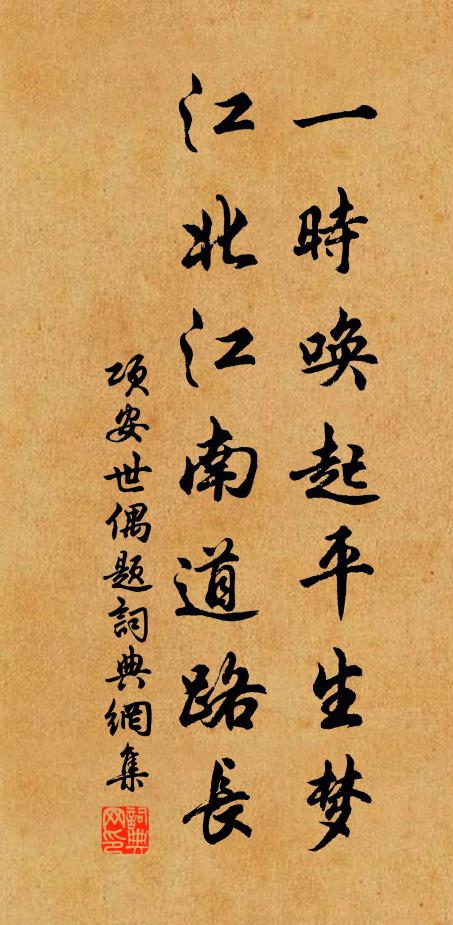 一時唤起平生梦
江北江南道路長
项安世偶题詞典網集
詞典网印